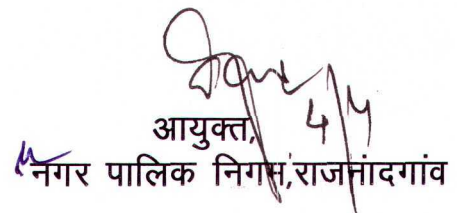 4/4
आयुक्त,
नगर पालिक निगम,राजनांदगांव